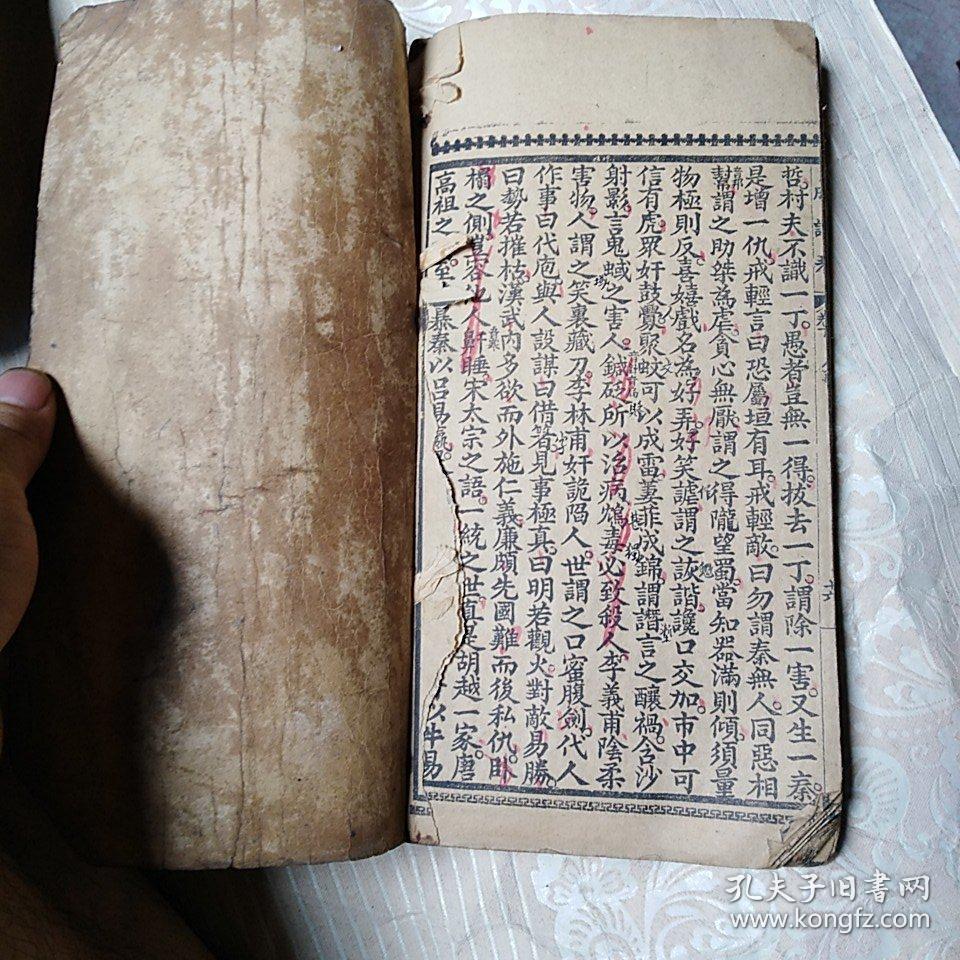 哲村夫不識一丁愚者豈無一得拔去一丁謂除一害又生一秦
是增一仇戒輕言曰恐屬垣有耳戒輕敵曰勿謂秦無人同惡相
幫謂之助桀為虐貪心無厭謂之得隴望蜀當知器滿則傾須量
物極則反喜嬉戲名為好弄好笑謔謂之詼諧讒口交加市中可
信有虎眾奸鼓釁聚蚊可以成雷萋菲成錦謂譖言之釀禍含沙
射影言鬼蜮之害人鍼砭所以治病鴆毒必致殺人李義甫陰柔
害物人謂之笑裏藏刀李林甫奸詭陷人世謂之口蜜腹劍代人
作事曰代庖與人設謀曰借箸見事極真曰明若觀火對敵易勝
曰勢若摧枯漢武內多欲而外施仁義廉頗先國難而後私仇臥
榻之側豈容他人鼾睡宋太宗之語一統之世真是胡越一家唐
高祖之 至 暴秦以呂易嬴 以牛易
孔夫子旧書网
www.kongfz.com